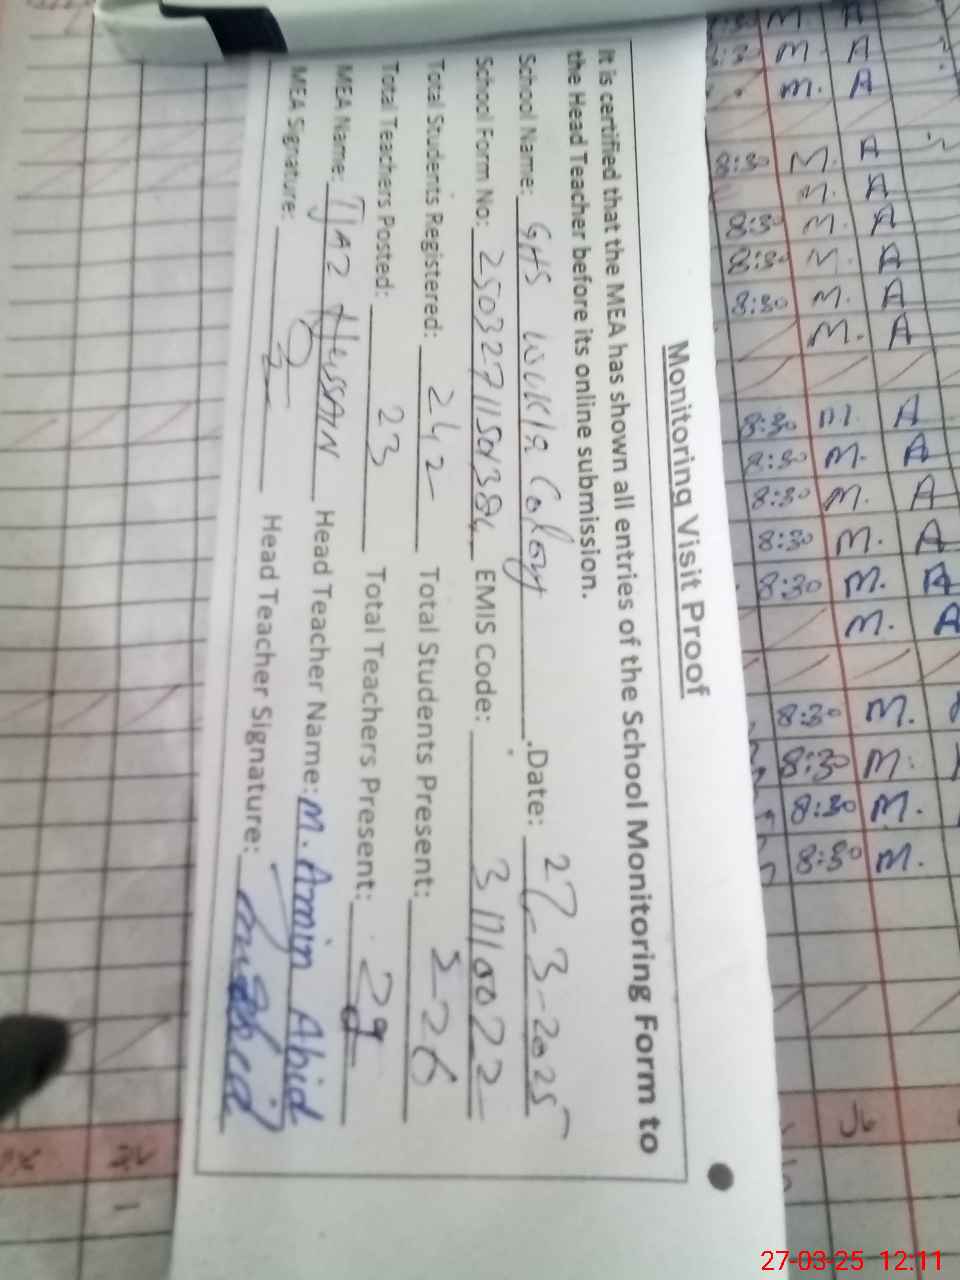 Monitoring Visit Proof
It is certified that the MEA has shown all entries of the School Monitoring Form to
the Head Teacher before its online submission.
School Name: GHS Colony Date: 27-3-2025
School Form No: EMIS Code:
Total Students Registered: 242 Total Students Present: 226
Total Teachers Posted: 23 Total Teachers Present:
MEA Name: IJAZ HUSSAIN Head Teacher Name: M. Amin Abid
MEA Signature: Head Teacher Signature:
M. A
M. A
M. A
8:30 M. A
M. A
8:30 M. A
8:30 M. A
8:30 M. A
M. A
8:30 M. A
8:30 M. A
8:30 M. A
8:30 M. A
8:30 M. A
M. A
8:30 M.
8:30 M.
8:30 M.
8:30 M.
27-03-25 12:11